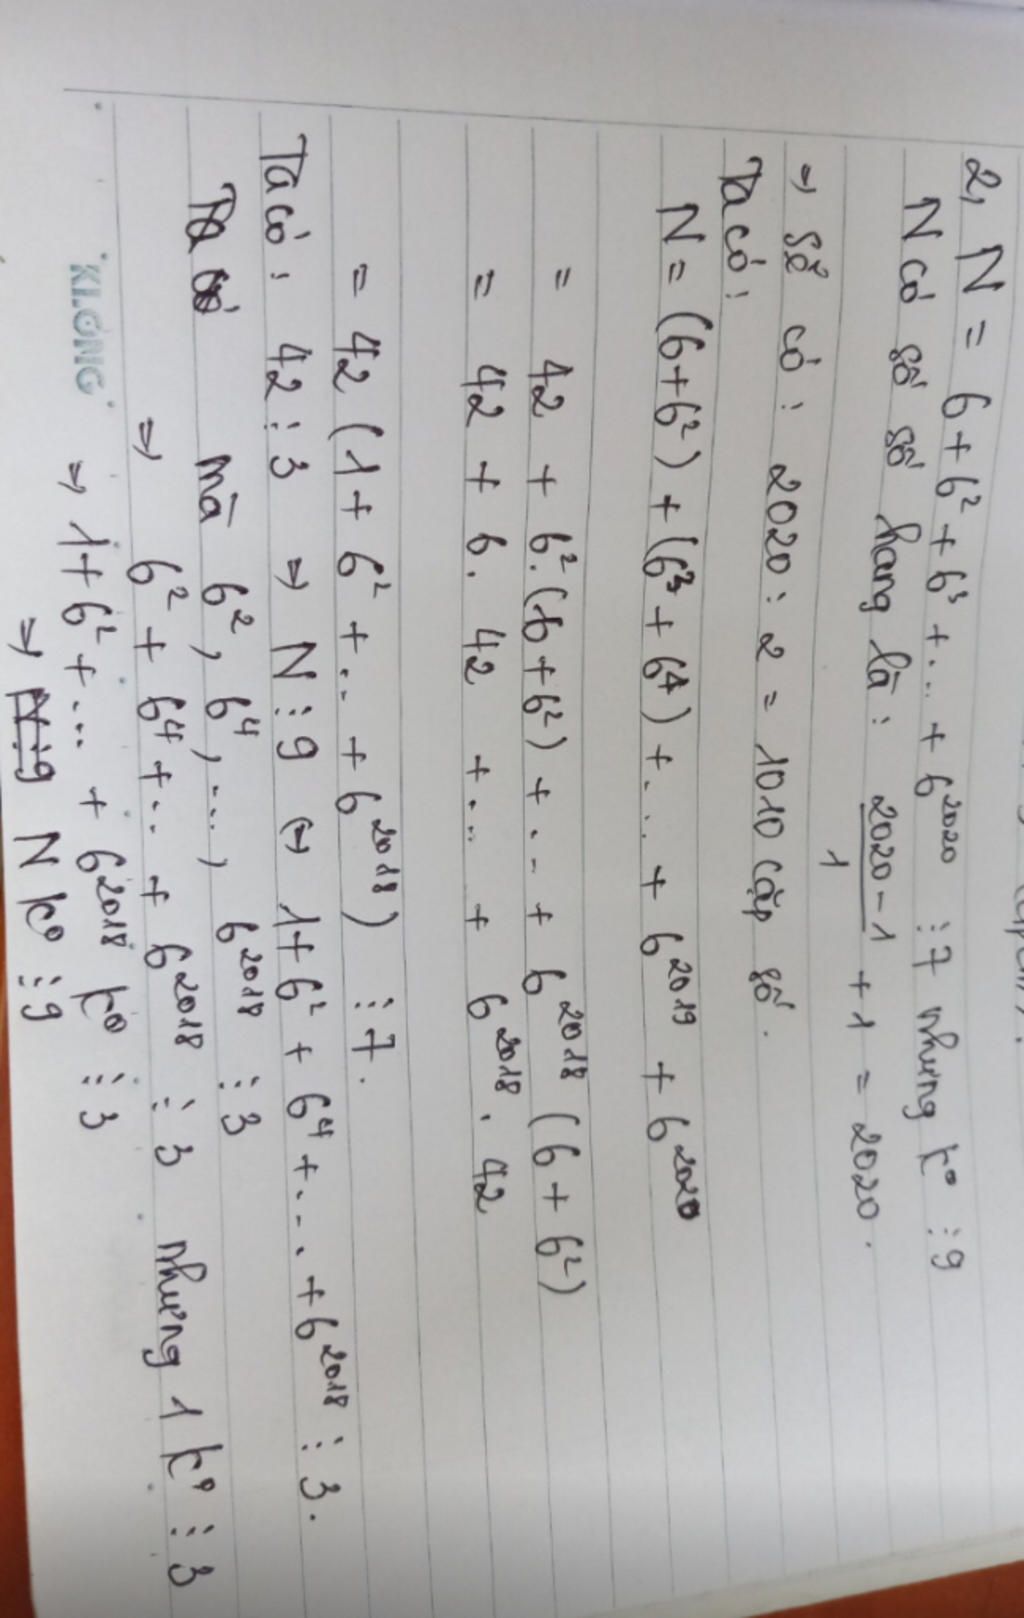 2, N = 6 + 6² + 6³ + ... + 6²⁰²⁰ ⋮ 7 nhưng k⁰ ⋮ 9
N có số số hạng là : (2020 - 1)/1 + 1 = 2020.
⇒ số có : 2020 : 2 = 1010 cặp số.
Ta có :
N = (6 + 6²) + (6³ + 6⁴) + ... + 6²⁰¹⁹ + 6²⁰²⁰
= 42 + 6².(6 + 6²) + ... + 6²⁰¹⁸ (6 + 6²)
= 42 + 6. 42 + ... + 6²⁰¹⁸ . 42
= 42 (1 + 6² + ... + 6²⁰¹⁸) ⋮ 7.
Ta có : 42 ⋮ 3 ⇒ N ⋮ 9 ⇔ 1 + 6² + 6⁴ + ... + 6²⁰¹⁸ ⋮ 3.
Ta có mà 6², 6⁴, ..., 6²⁰¹⁸ ⋮ 3
⇒ 6² + 6⁴ + ... + 6²⁰¹⁸ ⋮ 3 nhưng 1 k⁰ ⋮ 3
⇒ 1 + 6² + ... + 6²⁰¹⁸ k⁰ ⋮ 3
⇒ N ⋮ 9 N k⁰ ⋮ 9
KLONG